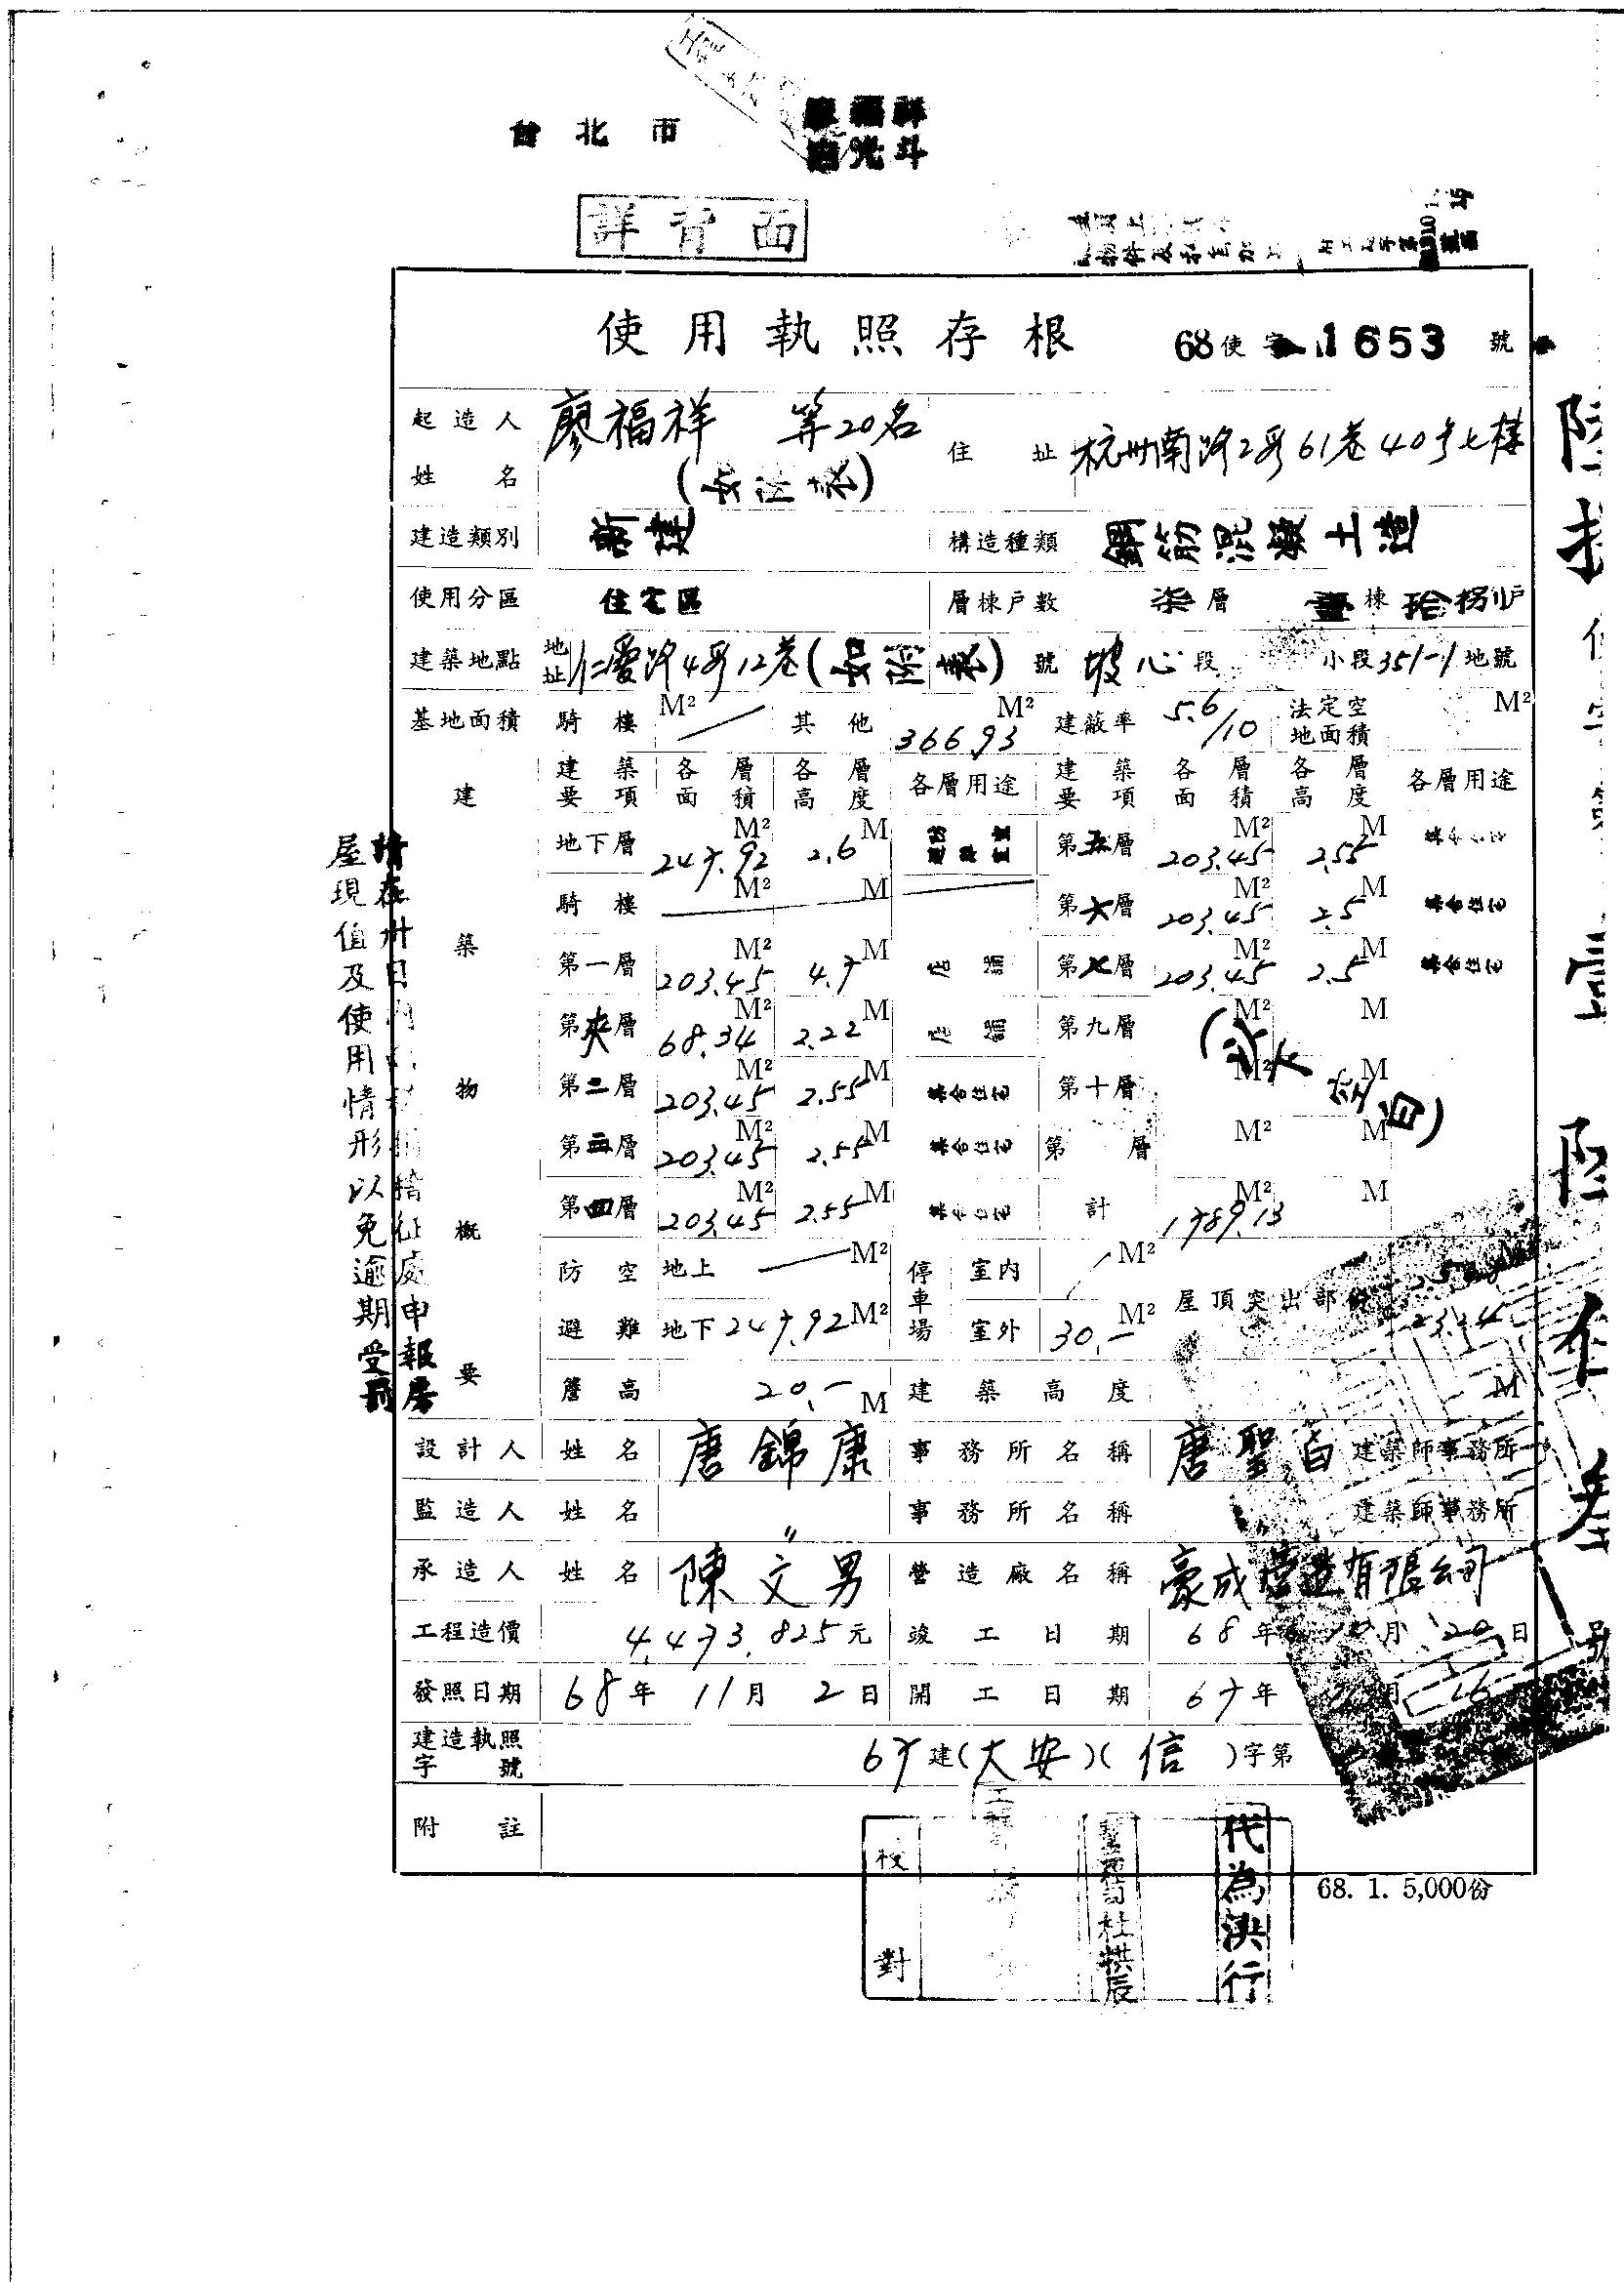 台北市
廖福祥
詳背面
使用執照存根 68使字 1653 號
起造人姓名 廖福祥 等20名 住址 杭州南路2段61巷40号七樓
建造類別 新建 構造種類 鋼筋混凝土造
使用分區 住宅區 層棟戶數 柒層 壹棟 拾捌戶
建築地點 地址 仁愛路4段12巷 號 坡心段 小段351-1地號
基地面積 騎樓 M² 其他 366.93 M² 建蔽率 5.6/10 法定空地面積 M²
建築物概要
建築要項 各層面積 各層高度 各層用途 建築要項 各層面積 各層高度 各層用途
地下層 247.92 M² 2.6 M 第五層 203.45 M² 2.55 M
騎樓 M² M 第六層 203.45 M² 2.5 M 集合住宅
第一層 203.45 M² 4.7 M 店舖 第七層 203.45 M² 2.5 M 集合住宅
第夾層 68.34 M² 2.22 M 店舖 第九層 M² M
第二層 203.45 M² 2.55 M 集合住宅 第十層 M² M
(以下空白)
第三層 203.45 M² 2.55 M 集合住宅 第 層 M² M
第四層 203.45 M² 2.55 M 集合住宅 計 1789.13 M² M
防空避難 地上 M² 停車場 室內 M² 屋頂突出部份
地下 247.92 M² 室外 30.- M² 23.34
簷高 20.- M 建築高度 M
設計人 姓名 唐錦康 事務所名稱 唐聖白 建築師事務所
監造人 姓名 〃 事務所名稱 建築師事務所
承造人 姓名 陳文男 營造廠名稱 豪成營造有限公司
工程造價 4,473,825元 竣工日期 68年10月20日
發照日期 68年11月2日 開工日期 67年 月16
建造執照字號 67建(大安)(信)字第
附註
校對
代為決行
68. 1. 5,000份
屋現值及使用情形以免逾期受罰